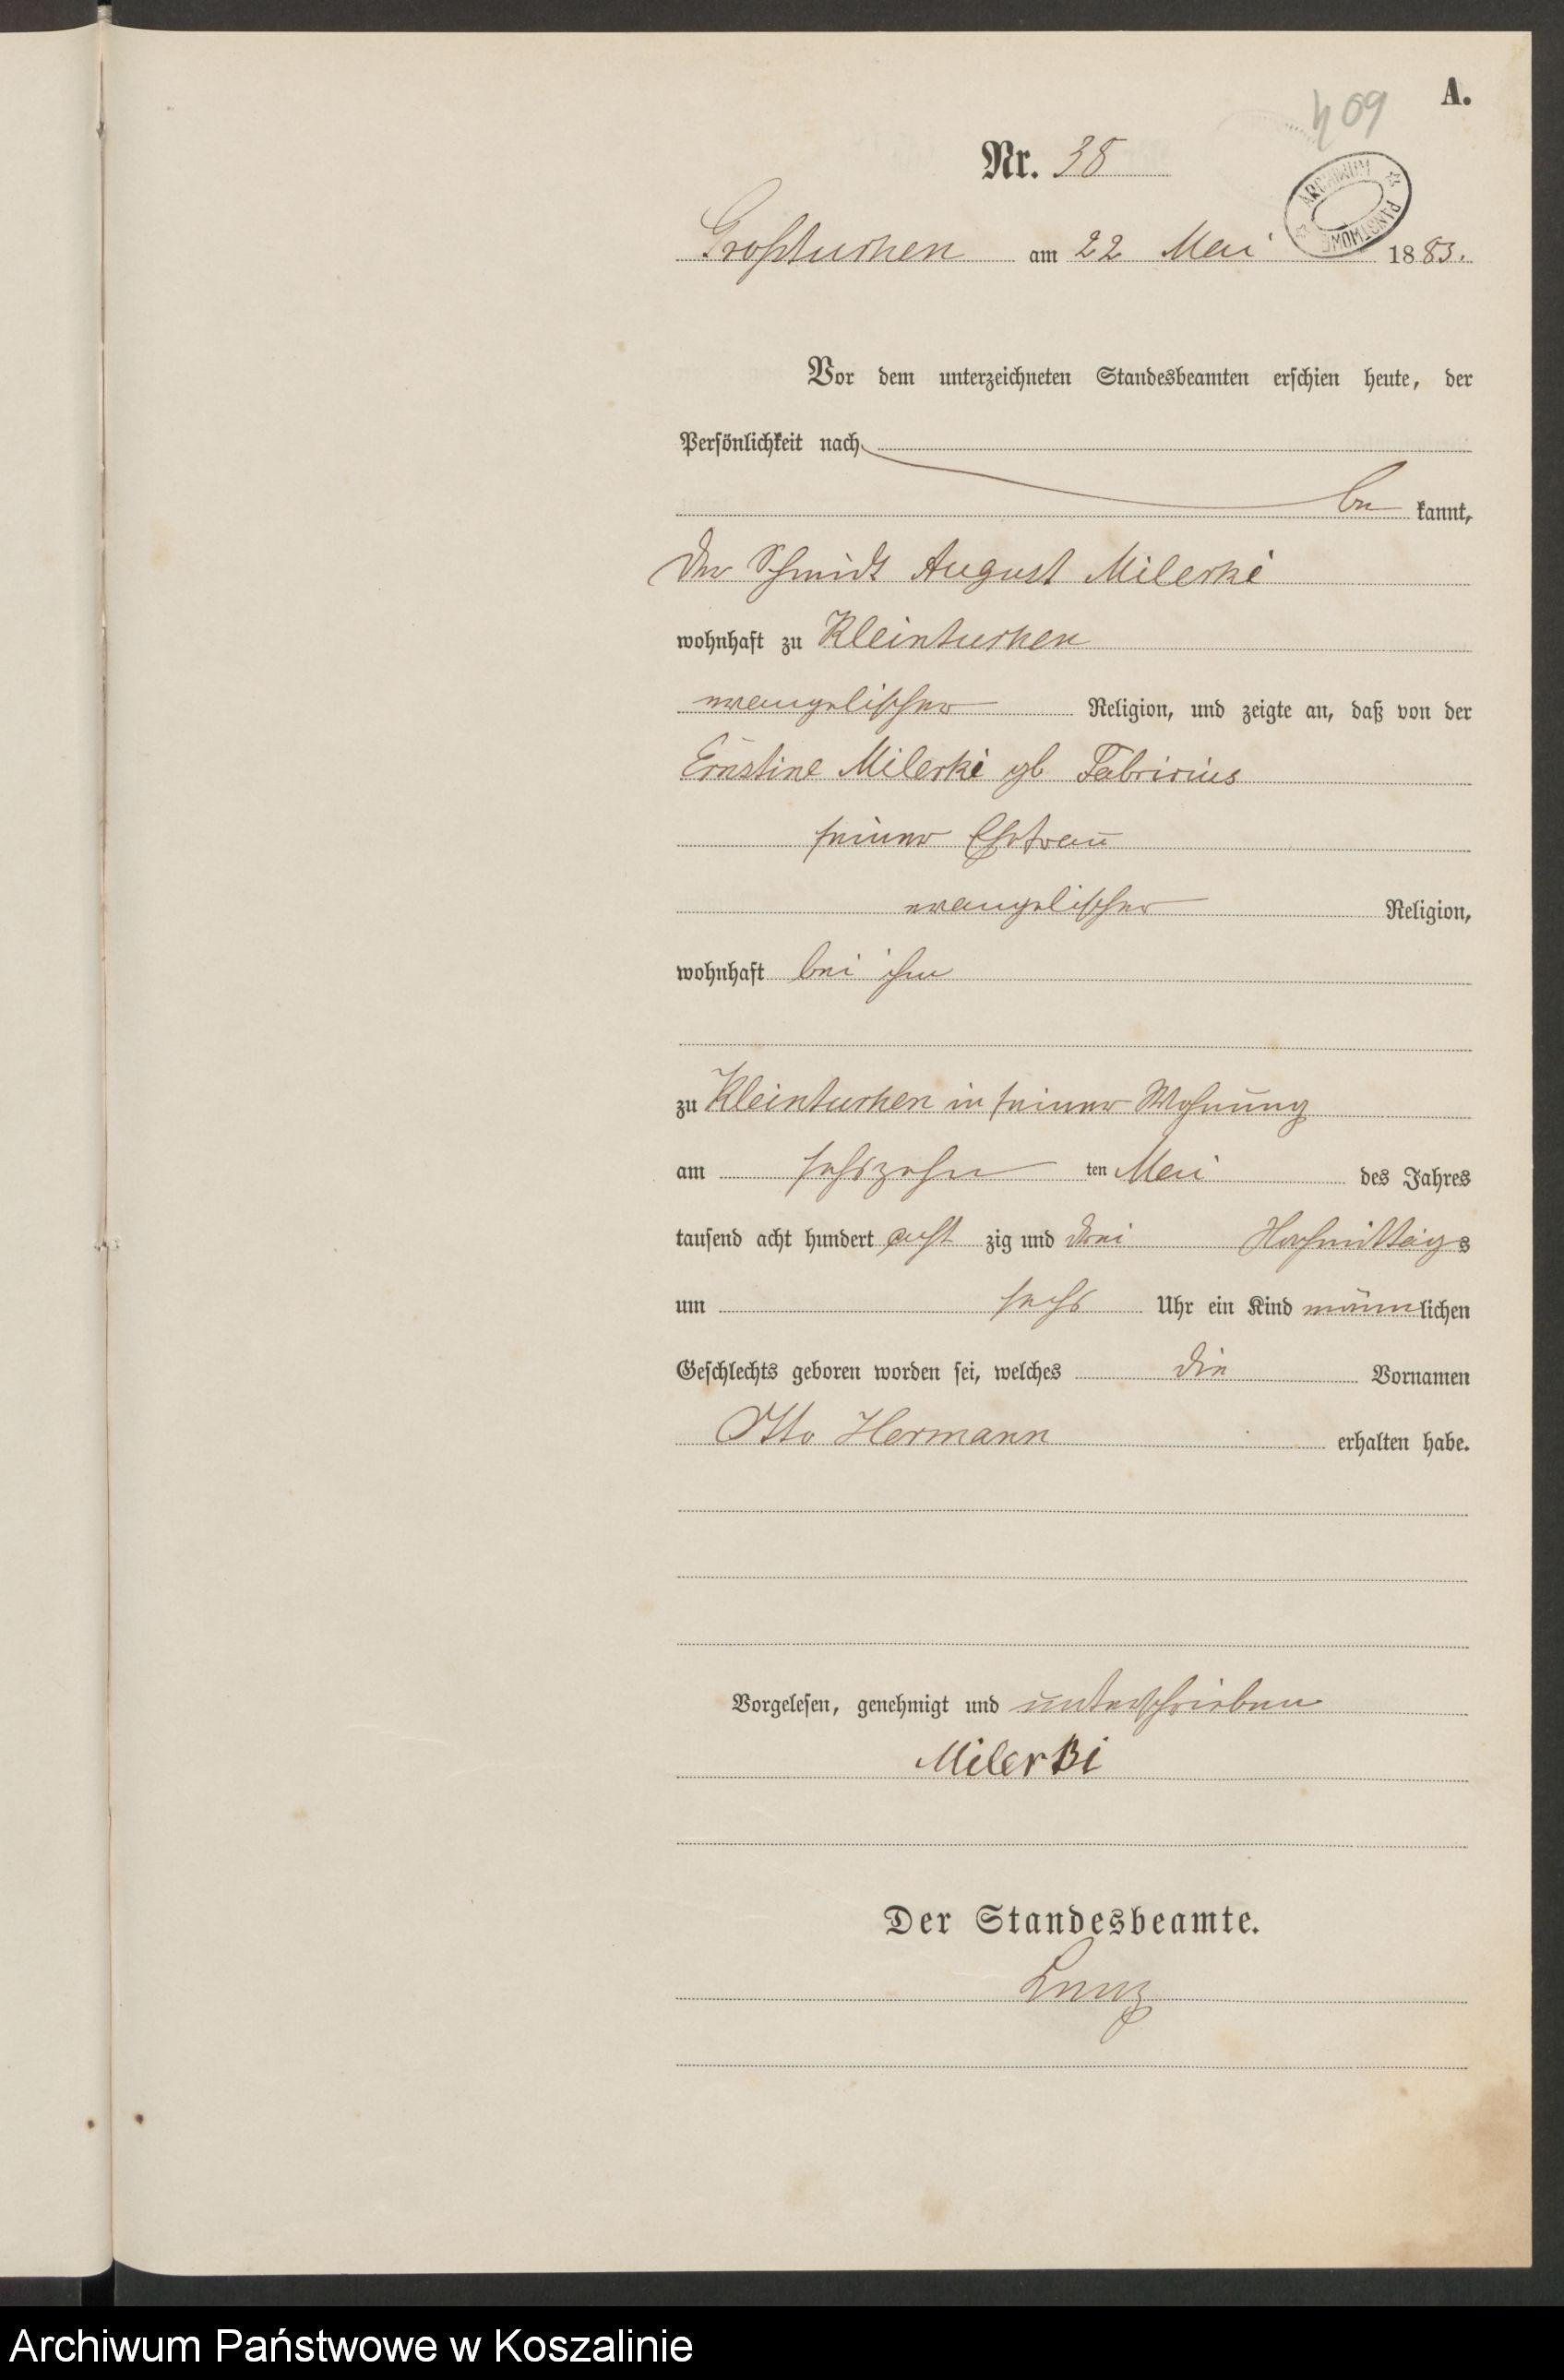 A.
409
Nr. 38
ARCHIWUM PAŃSTWOWE
Großtuchen am 22 Mai 1883.
Vor dem unterzeichneten Standesbeamten erschien heute, der
Persönlichkeit nach
be kannt,
der Schmidt August Milerski
wohnhaft zu Kleintuchen
evangelischer Religion, und zeigte an, daß von der
Ernstine Milerski gb Fabricius
seiner Ehefrau
evangelischer Religion,
wohnhaft bei ihm
zu Kleintuchen in seiner Wohnung
am sechszehn ten Mai des Jahres
tausend acht hundert acht zig und drei Nachmittags
um sechs Uhr ein Kind männlichen
Geschlechts geboren worden sei, welches die Vornamen
Otto Hermann erhalten habe.
Vorgelesen, genehmigt und unterschrieben
Der Standesbeamte.
Archiwum Państwowe w Koszalinie